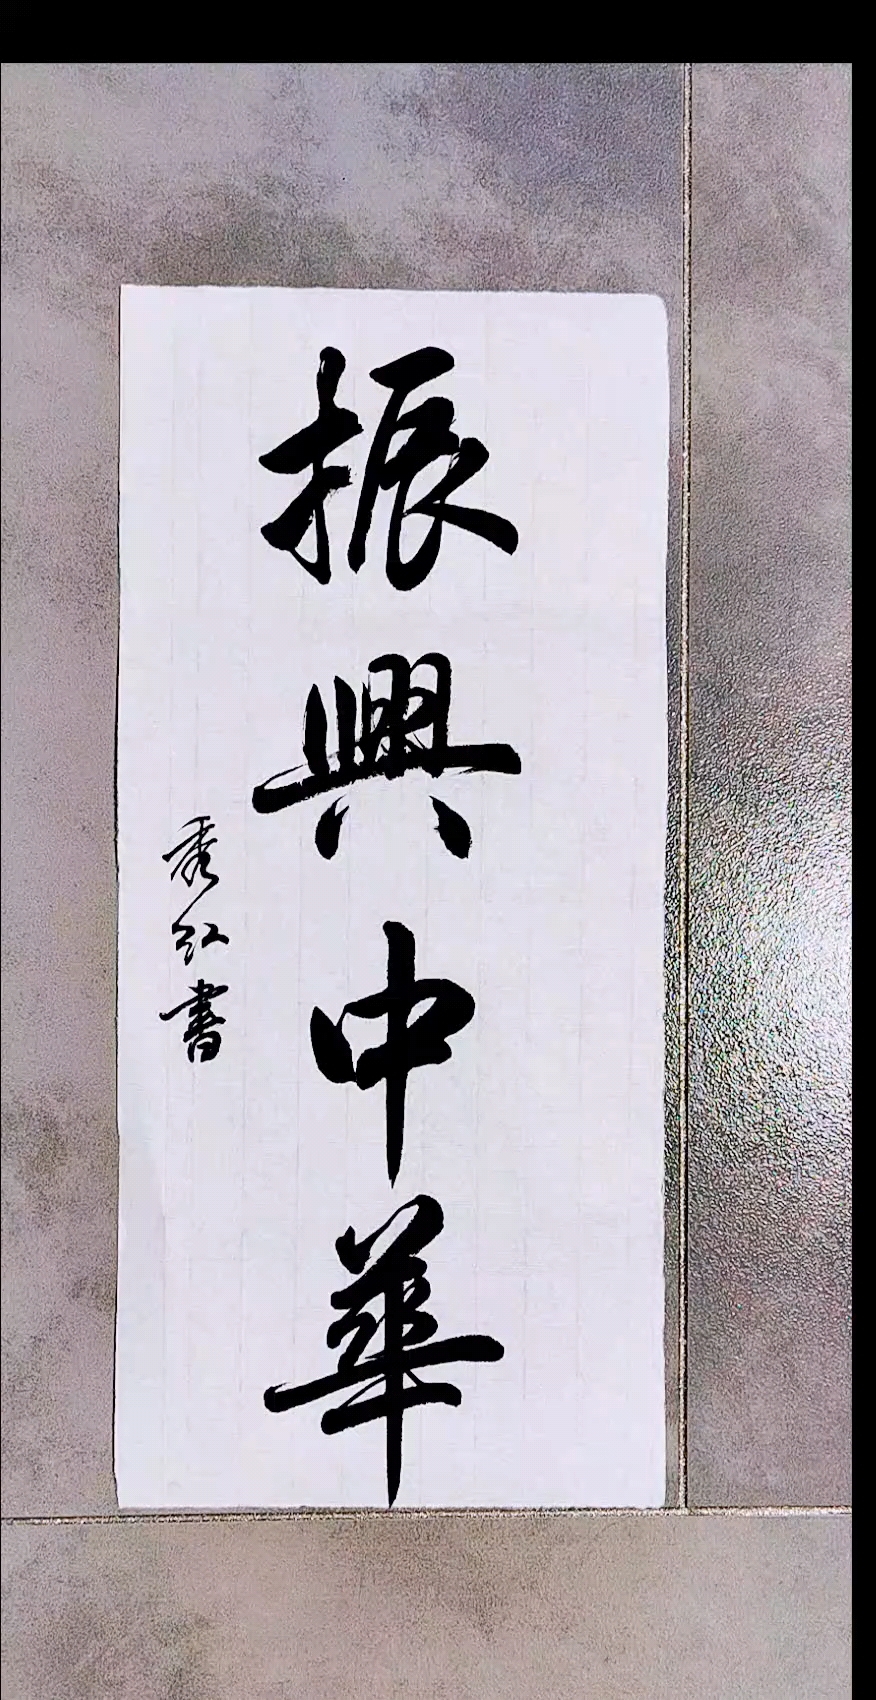 振興中華
秀红書